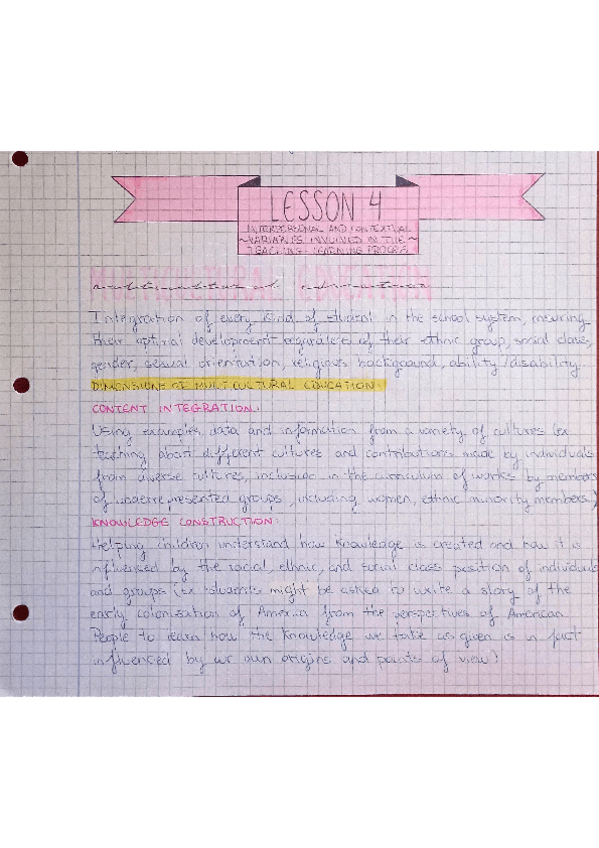 LESSON 4
INTERPERSONAL AND CONTEXTUAL
~VARIABLES INVOLVED IN THE~
TEACHING-LEARNING PROCESS
MULTICULTURAL EDUCATION
multicultural education
Integration of every kind of student in the school system, ensuring
their optimal development regardless of their ethnic group, social class,
gender, sexual orientation, religious background, ability/disability.
DIMENSIONS OF MULTICULTURAL EDUCATION:
CONTENT INTEGRATION:
Using examples, data and information from a variety of cultures (ex
teaching about different cultures and contributions made by individuals
from diverse cultures, inclusion in the curriculum of works by members
of underrepresented groups, including women, ethnic minority members)
KNOWLEDGE CONSTRUCTION:
Helping children understand how knowledge is created and how it is
influenced by the social, ethnic, and social class position of individuals
and groups (ex students might be asked to write a story of the
early colonization of America from the perspectives of American
People to learn how the knowledge we take as given is in fact
influenced by we own origins and points of view)